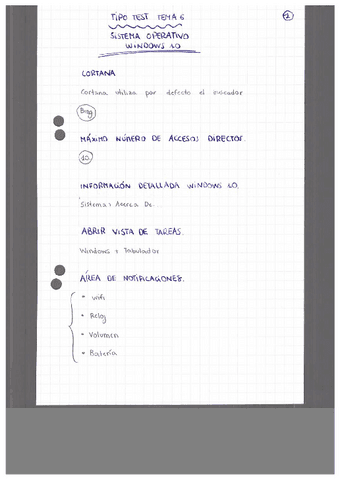 TIPO TEST TEMA 6
1
SISTEMA OPERATIVO
WINDOWS 10
CORTANA
Cortana utiliza por defecto el buscador
Bing
MÁXIMO NÚMERO DE ACCESOS DIRECTOR.
10.
INFORMACIÓN DETALLADA WINDOWS 10.
Sistema > Acerca De.
ABRIR VISTA DE TAREAS.
Windows + Tabulador
ÁREA DE NOTIFICACIONES.
• Wifi
• Reloj
• Volumen
• Batería